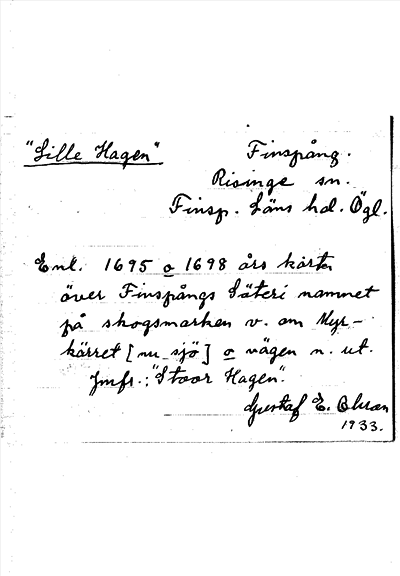 "Lille Hagen"
Finspång.
Risinge sn.
Finsp. Läns hd. Ögl.
Enl. 1695 o 1698 års kartor
över Finspångs Säteri namnet
på skogsmarken v. om Myr-
kärret [nu sjö] o vägen n. ut.
Jmfr.: "Stoor Hagen".
Gustaf E. Olsson
1933.